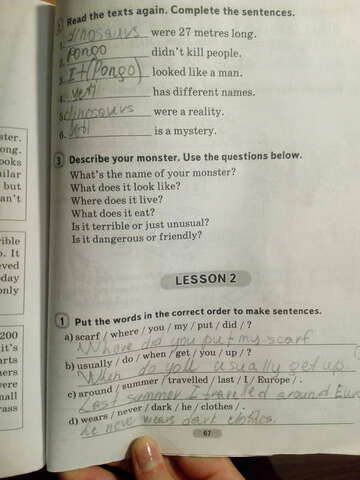 ster.
ong.
ooks
ilar
but
an't
rible
o. It
eved
day
only
200
it's
arts
hers
vere
mall
rass
Read the texts again. Complete the sentences.
1. dinosaurs were 27 metres long.
2. Pongo didn't kill people.
3. It (Pongo) looked like a man.
4. yeti has different names.
5. dinosaurs were a reality.
6. yeti is a mystery.
3 Describe your monster. Use the questions below.
What's the name of your monster?
What does it look like?
Where does it live?
What does it eat?
Is it terrible or just unusual?
Is it dangerous or friendly?
LESSON 2
1 Put the words in the correct order to make sentences.
a) scarf / where / you / my / put / did / ?
Where did you put my scarf
b) usually / do / when / get / you / up / ?
When do you usually get up.
c) around / summer / travelled / last / I / Europe / .
Last summer I traveled around Euro
d) wears / never / dark / he / clothes / .
he never wears dark clothes.
67